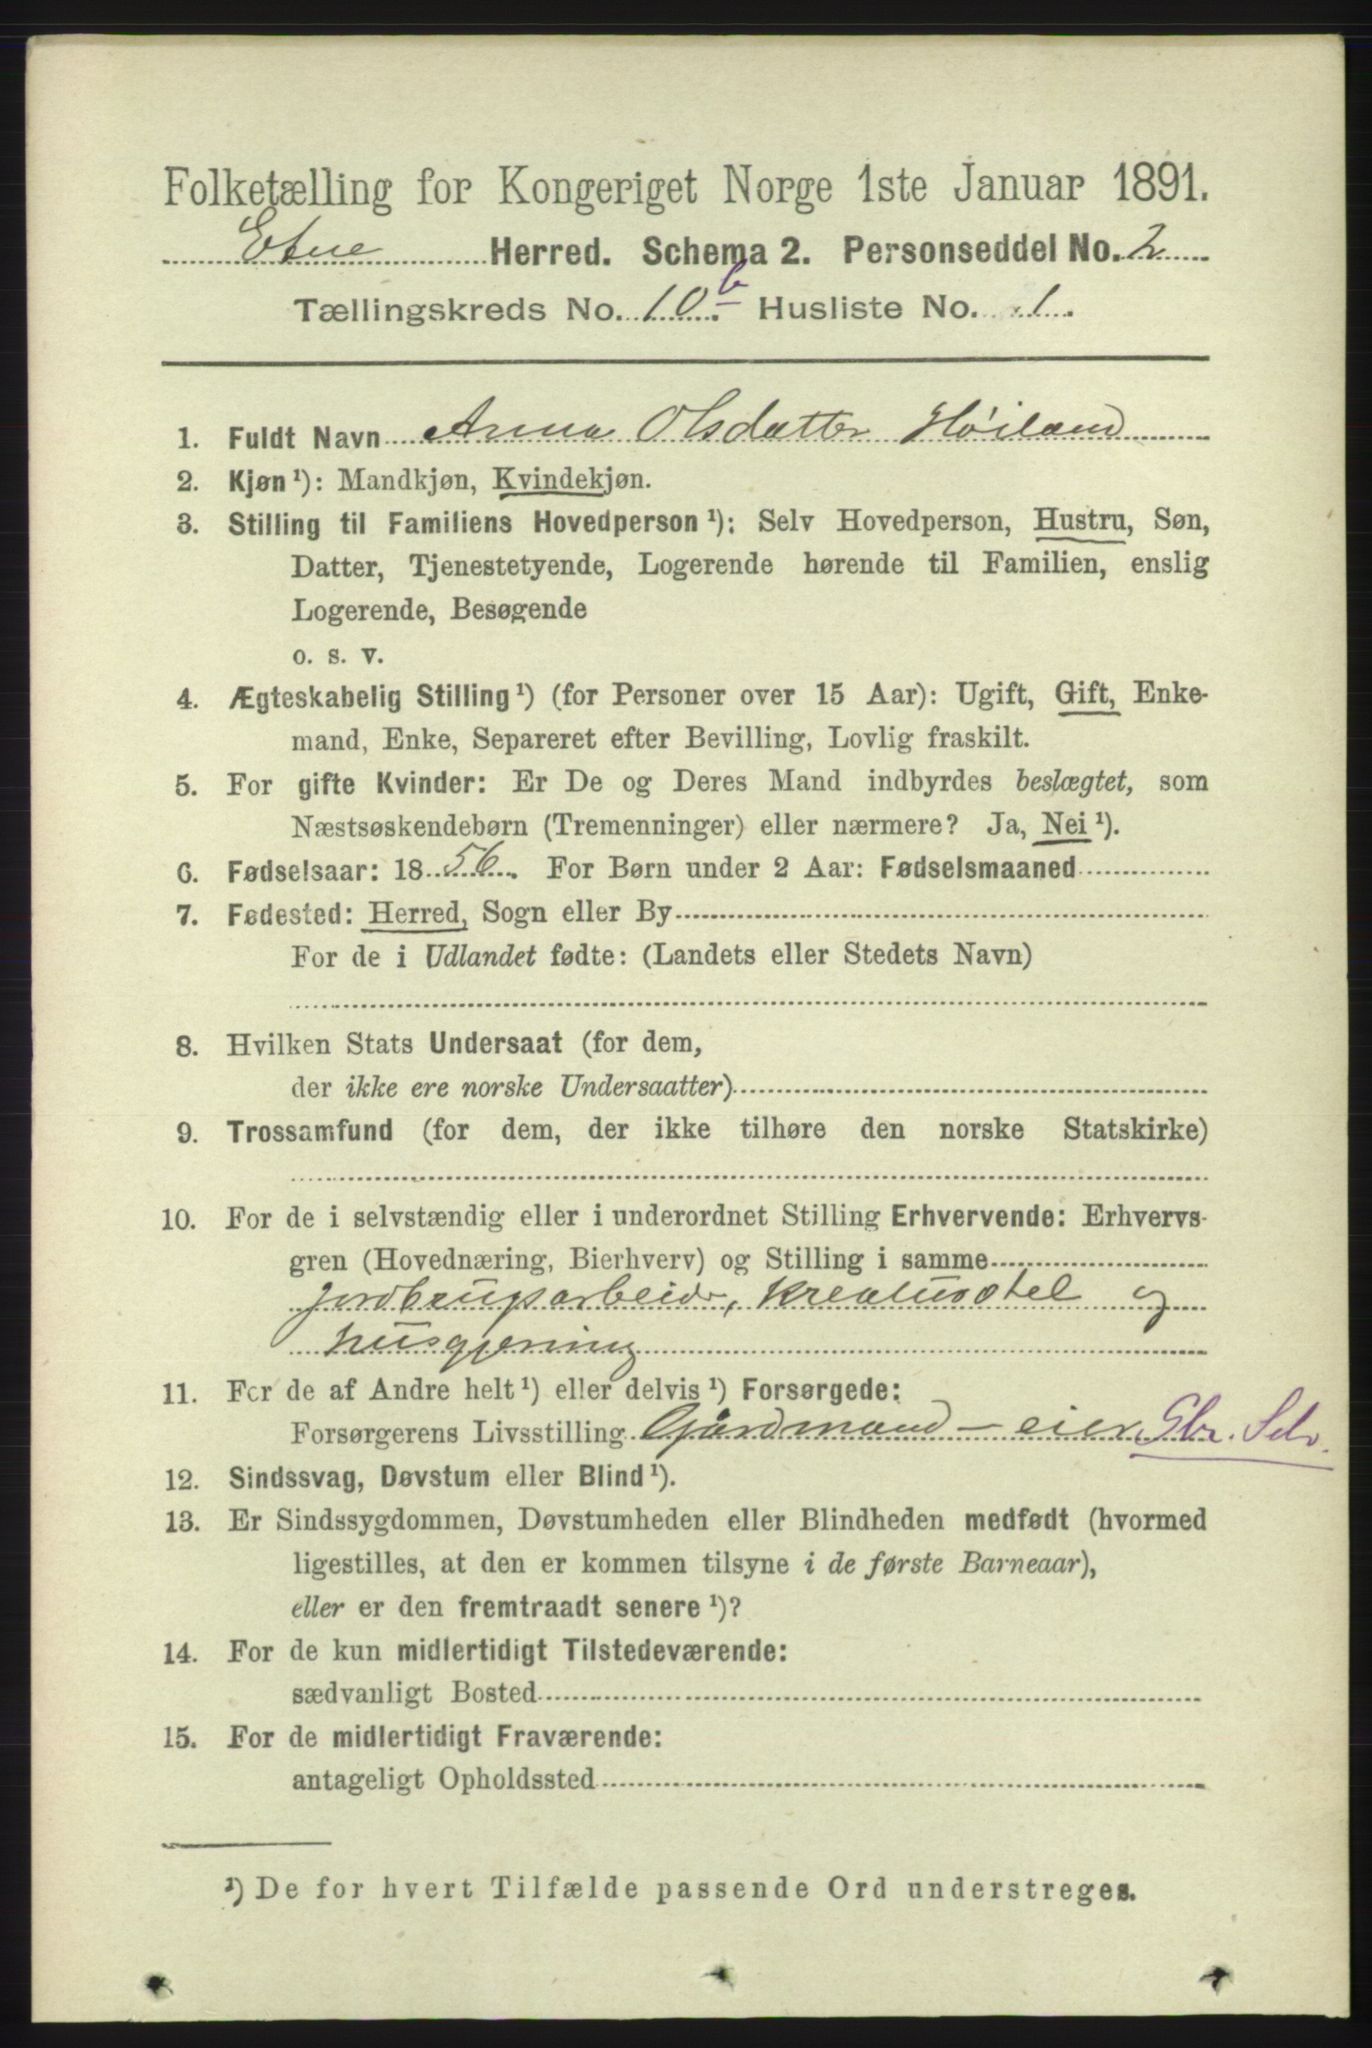 Folketælling for Kongeriget Norge 1ste Januar 1891.
Etne Herred. Schema 2. Personseddel No. 2
Tællingskreds No. 10.b Husliste No. 1.
1. Fuldt Navn Anna Olsdatter Høiland
2. Kjøn ¹): Mandkjøn, Kvindekjøn.
3. Stilling til Familiens Hovedperson ¹): Selv Hovedperson, Hustru, Søn,
Datter, Tjenestetyende, Logerende hørende til Familien, enslig
Logerende, Besøgende
o. s. v.
4. Ægteskabelig Stilling ¹) (for Personer over 15 Aar): Ugift, Gift, Enke-
mand, Enke, Separeret efter Bevilling, Lovlig fraskilt.
5. For gifte Kvinder: Er De og Deres Mand indbyrdes beslægtet, som
Næstsøskendebørn (Tremenninger) eller nærmere? Ja, Nei ¹).
6. Fødselsaar: 18 56. For Børn under 2 Aar: Fødselsmaaned
7. Fødested: Herred, Sogn eller By
For de i Udlandet fødte: (Landets eller Stedets Navn)
8. Hvilken Stats Undersaat (for dem,
der ikke ere norske Undersaatter)
9. Trossamfund (for dem, der ikke tilhøre den norske Statskirke)
10. For de i selvstændig eller i underordnet Stilling Erhvervende: Erhvervs-
gren (Hovednæring, Bierhverv) og Stilling i samme
jordbrugsarbeide, kreaturstel og
husgjerning
11. For de af Andre helt ¹) eller delvis ¹) Forsørgede:
Forsørgerens Livsstilling Gårdmand - eier. Gbr. Selv.
12. Sindssvag, Døvstum eller Blind ¹).
13. Er Sindssygdommen, Døvstumheden eller Blindheden medfødt (hvormed
ligestilles, at den er kommen tilsyne i de første Barneaar),
eller er den fremtraadt senere ¹)?
14. For de kun midlertidigt Tilstedeværende:
sædvanligt Bosted
15. For de midlertidigt Fraværende:
antageligt Opholdssted
¹) De for hvert Tilfælde passende Ord understreges.